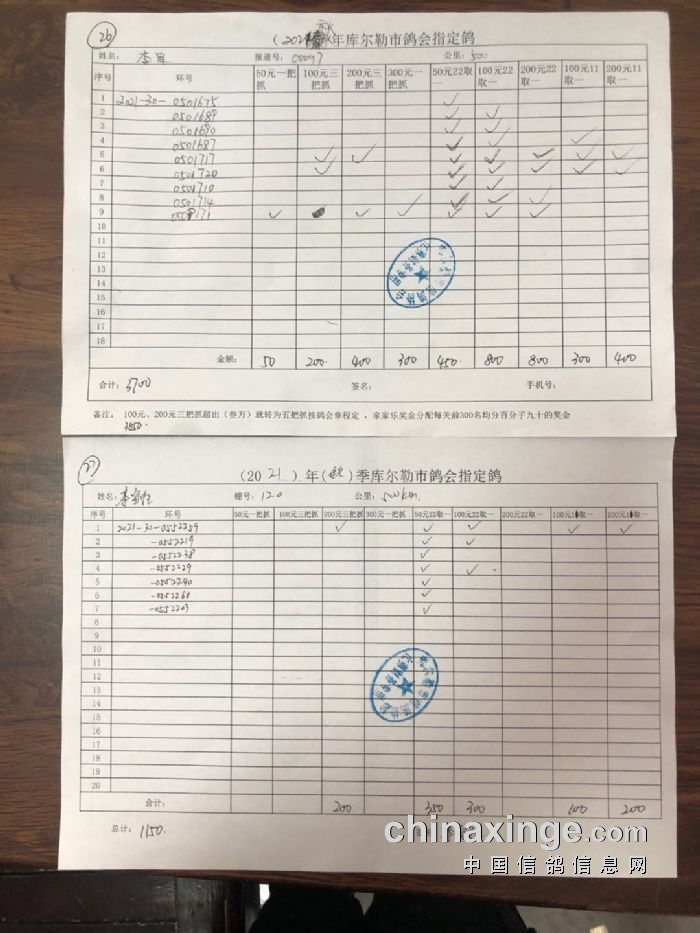 26
(2021 秋 年库尔勒市鸽会指定鸽
姓名: 李军 报道号: 00097 公里: 500
序号 环号 50元一把抓 100元三把抓 200元三把抓 300元一把抓 50元22取一 100元22取一 200元22取一 100元11取一 200元11取一
1 2021-30-0501675 ✓
2 0501689 ✓ ✓
3 0501690 ✓ ✓
4 0501687 ✓ ✓ ✓
5 0501717 ✓ ✓ ✓ ✓ ✓ ✓ ✓
6 0501720 ✓ ✓ ✓ ✓ ✓ ✓
7 0501710 ✓ ✓
8 0501714 ✓ ✓ ✓
9 ✓ ✓ ✓ ✓ ✓ ✓
10
11
12
13
14
15
16
17
18
金额: 50 200 400 300 450 800 800 300 400
合计: 3700 签名: 手机号:
备注: 100元、200元三把抓超出(叁万)就转为五把抓按鸽会章程定.家家乐奖金分配每关前300名均分百分子九十的奖金
27
(20 21 )年(秋)季库尔勒市鸽会指定鸽
姓名: 李 棚号: 120 公里: 500km
序号 环号 50元一把抓 100元三把抓 200元三把抓 300元一把抓 50元22取一 100元22取一 200元22取一 100元11取一 200元11取一
1 2021-30-0552259 ✓ ✓ ✓ ✓ ✓
2 -0552219 ✓ ✓
3 -0552238 ✓
4 -0552229 ✓ ✓
5 -0552240 ✓
6 -0552260 ✓
7 -0552203 ✓
8
9
10
11
12
13
14
15
16
17
18
19
20
合计: 200 350 300 100 200
总计: 1150.
chinaxinge.com
中国信鸽信息网